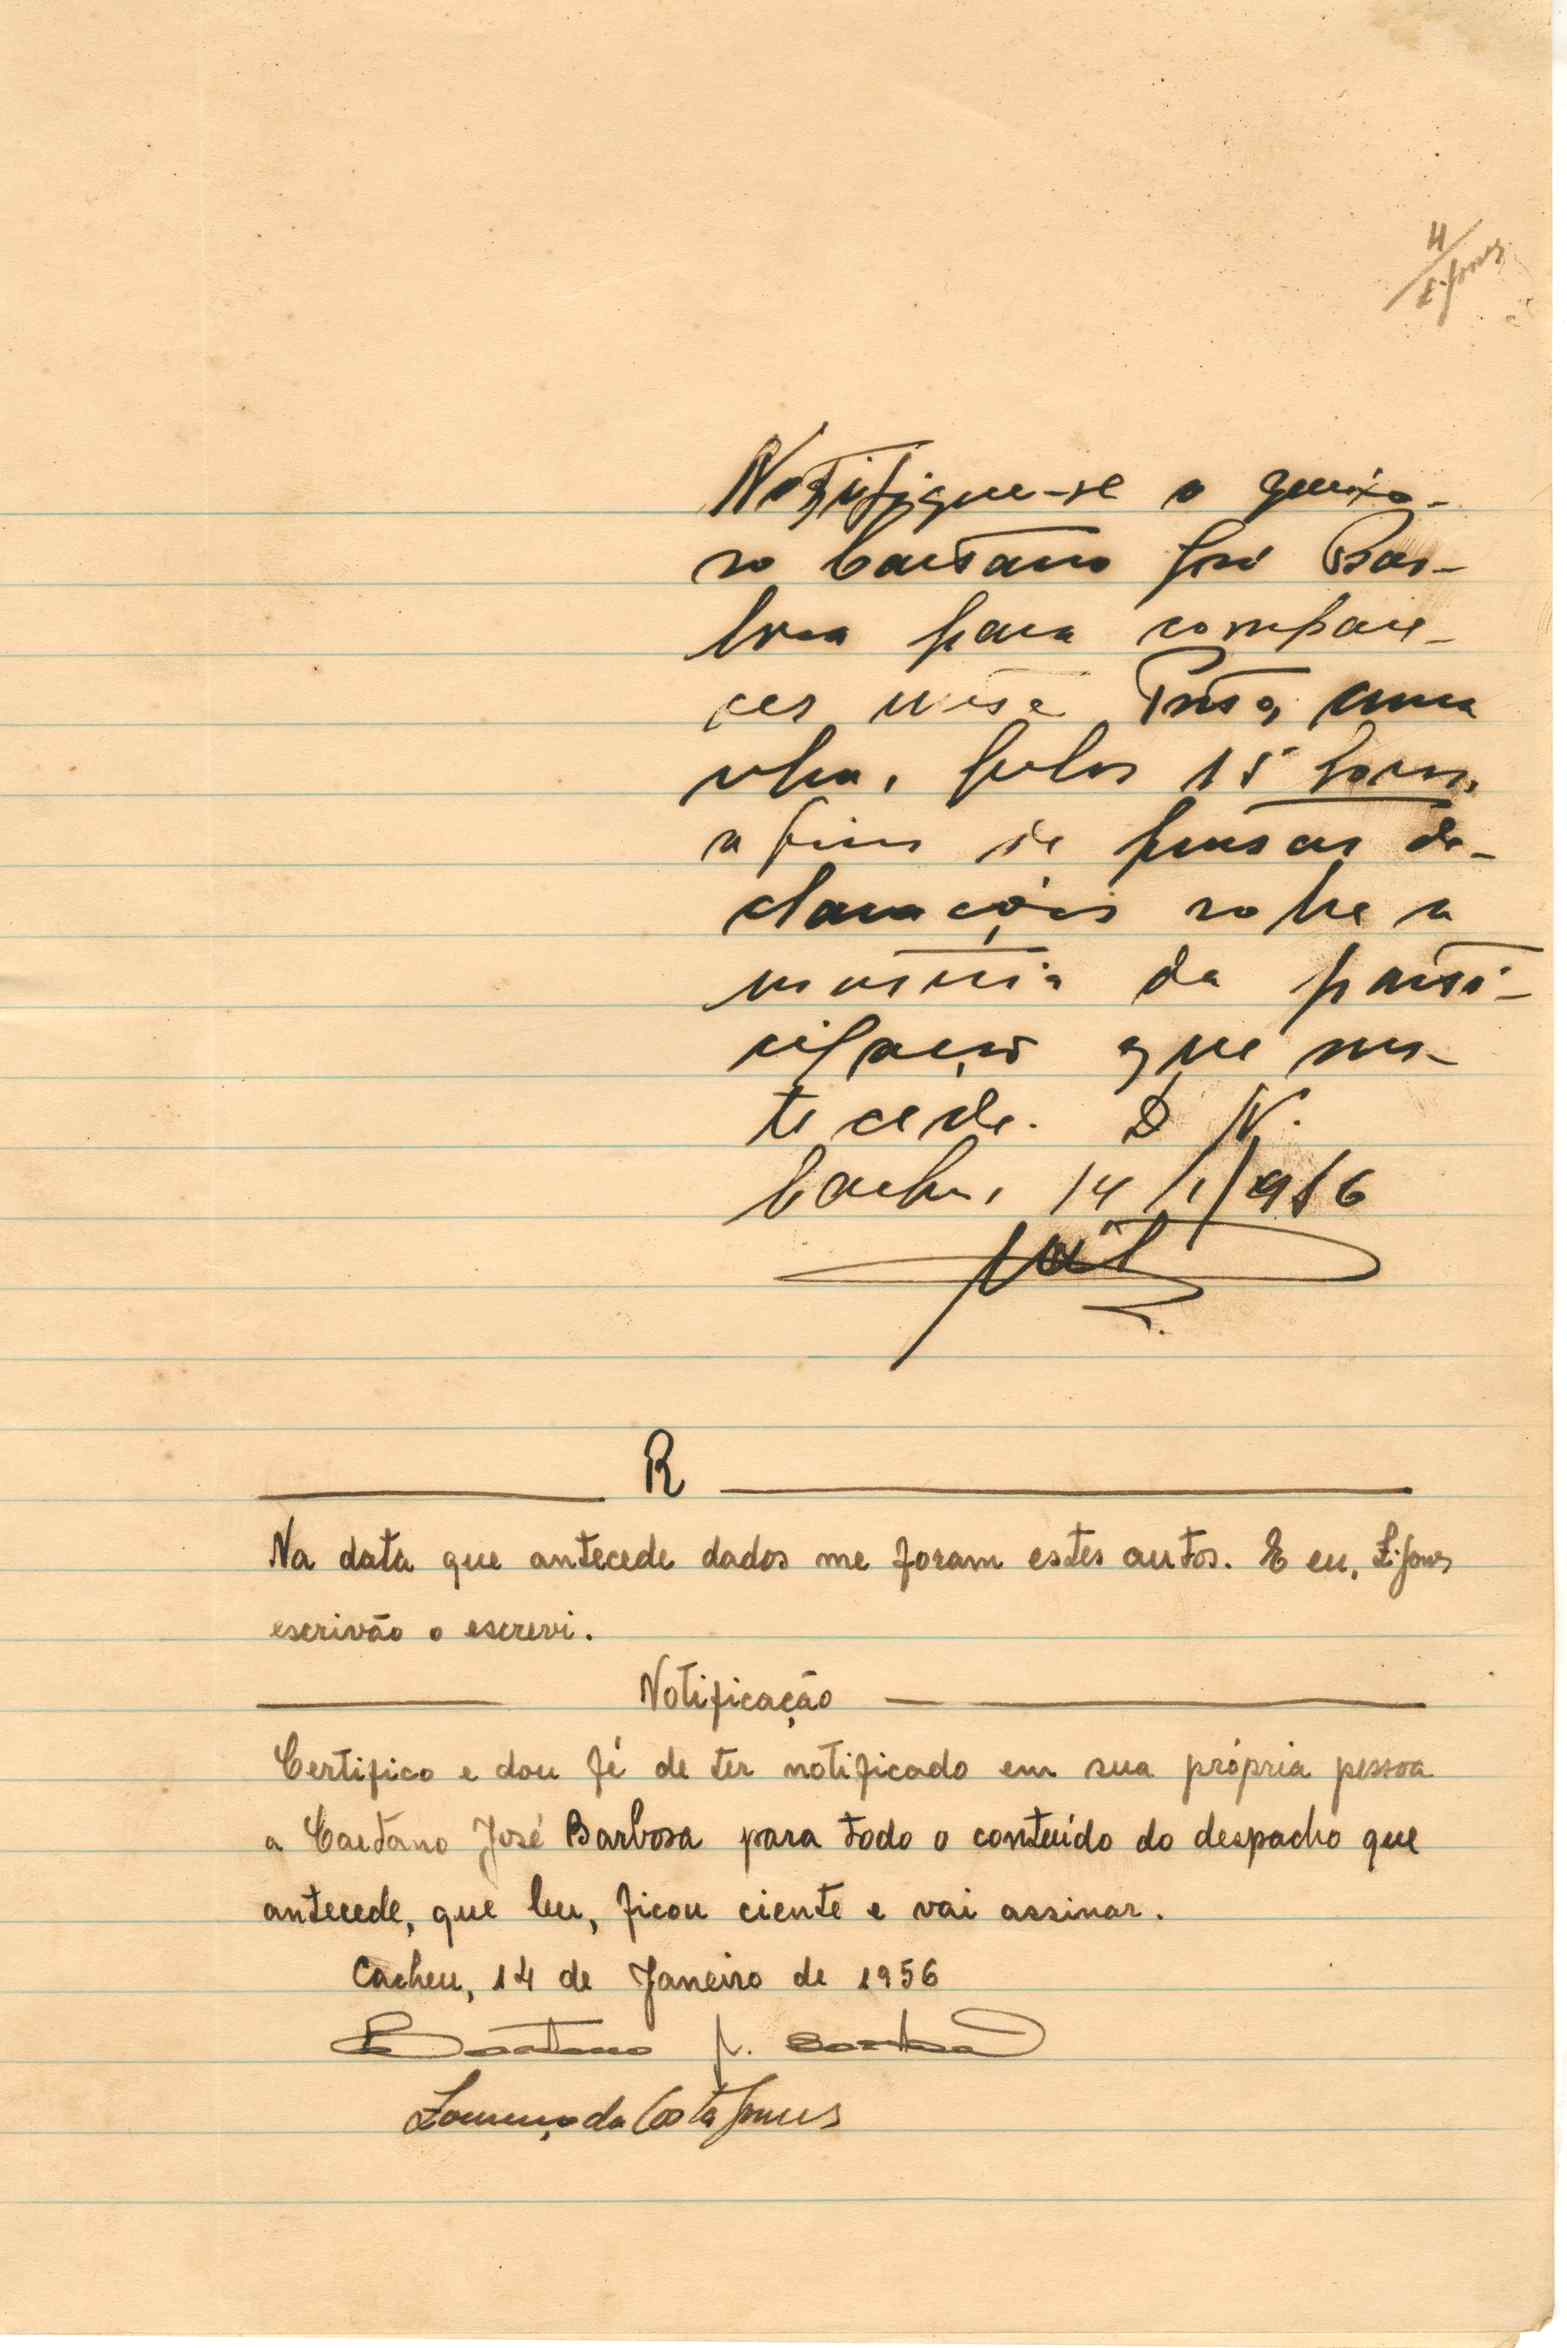 4
L. Gomes
Notifique-se o queixo-
so Caetano José Bar-
bosa para compare-
cer neste Posto, ama
nhã, pelas 15 horas,
a fim de prestar de-
clarações sobre a
matéria da parti-
cipação que an-
tecede. D. N.
Cacheu, 14/1/956
R
Na data que antecede dados me foram estes autos. E eu, L. Gomes
escrivão o escrevi.
Notificação
Certifico e dou fé de ter notificado em sua própria pessoa
a Caetano José Barbosa para todo o conteúdo do despacho que
antecede, que leu, ficou ciente e vai assinar.
Cacheu, 14 de Janeiro de 1956
Caetano J. Barbosa
Lourenço da Costa Gomes